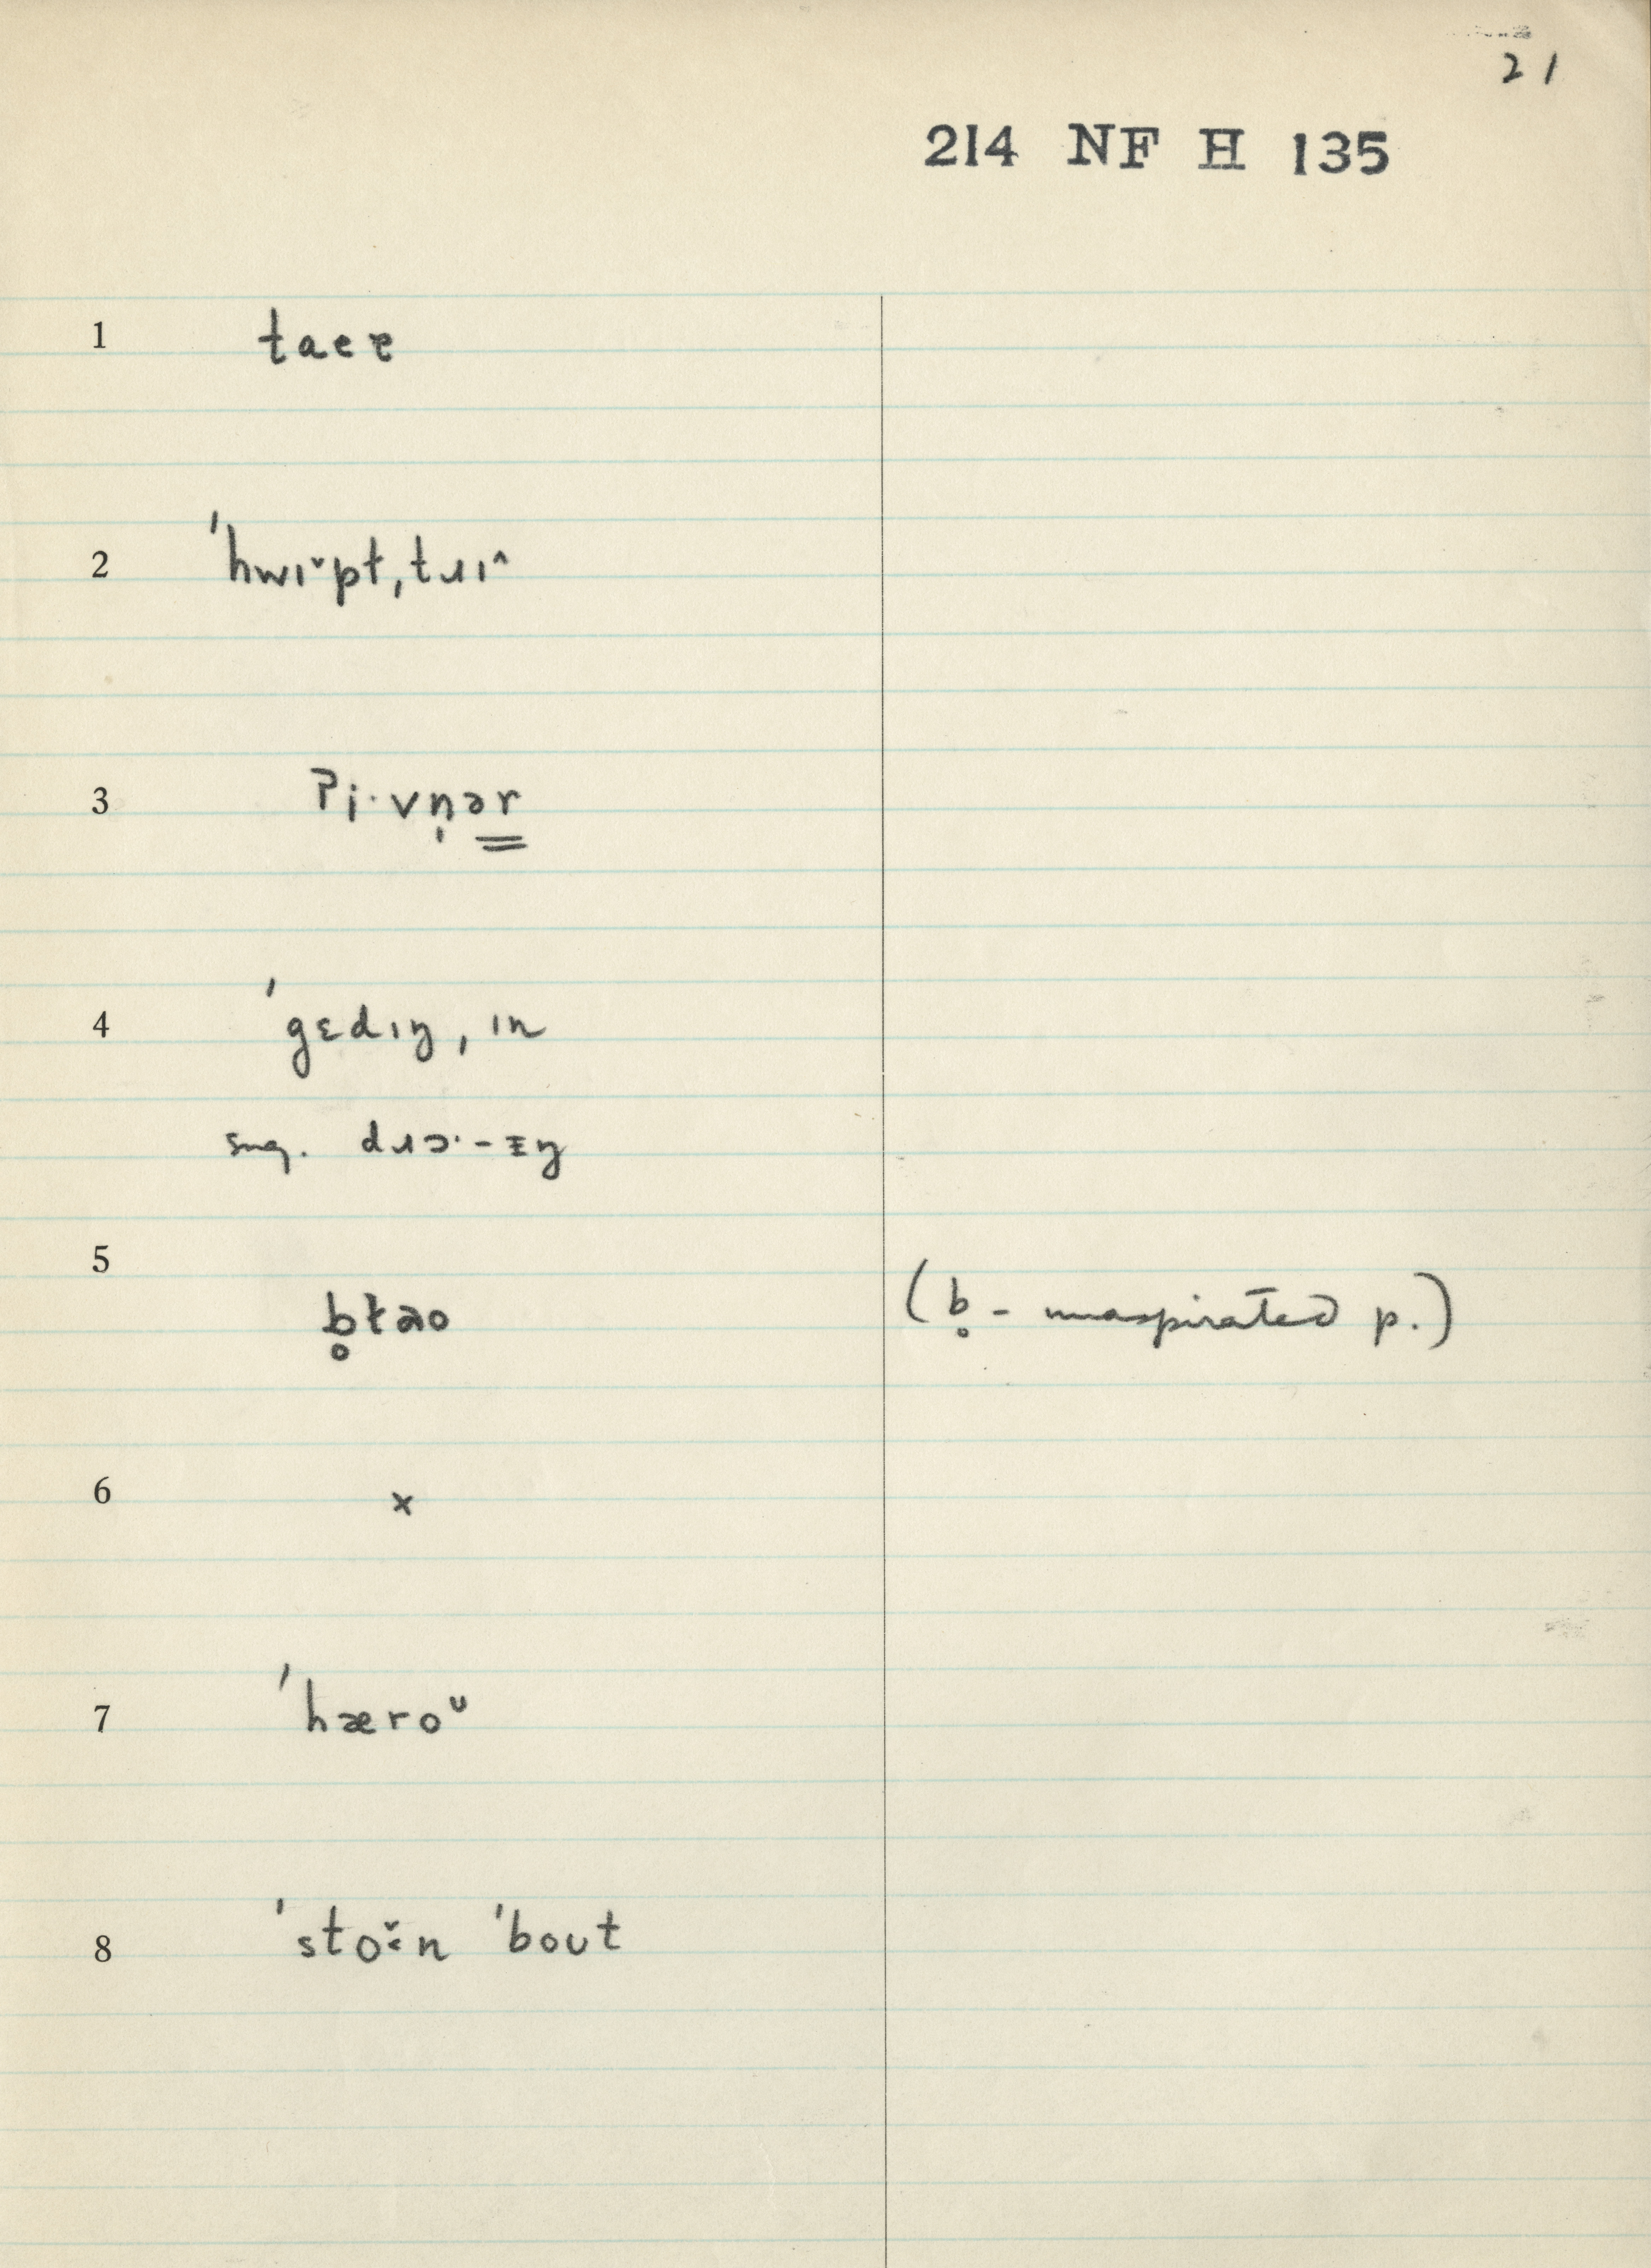 21
214 NF H 135
1 taeɐ
2 ˈhwɪˇpt,tɹɪ^
3 ʔi·vn̩ər
4 ˈgɛdɪŋ, ɪn
sug. dɹɔ·-ɪŋ
5 b̥ɫao (b̥ - unaspirated p.)
6 x
7 ˈhæroᵘ
8 ˈstoˇ:n ˈbout